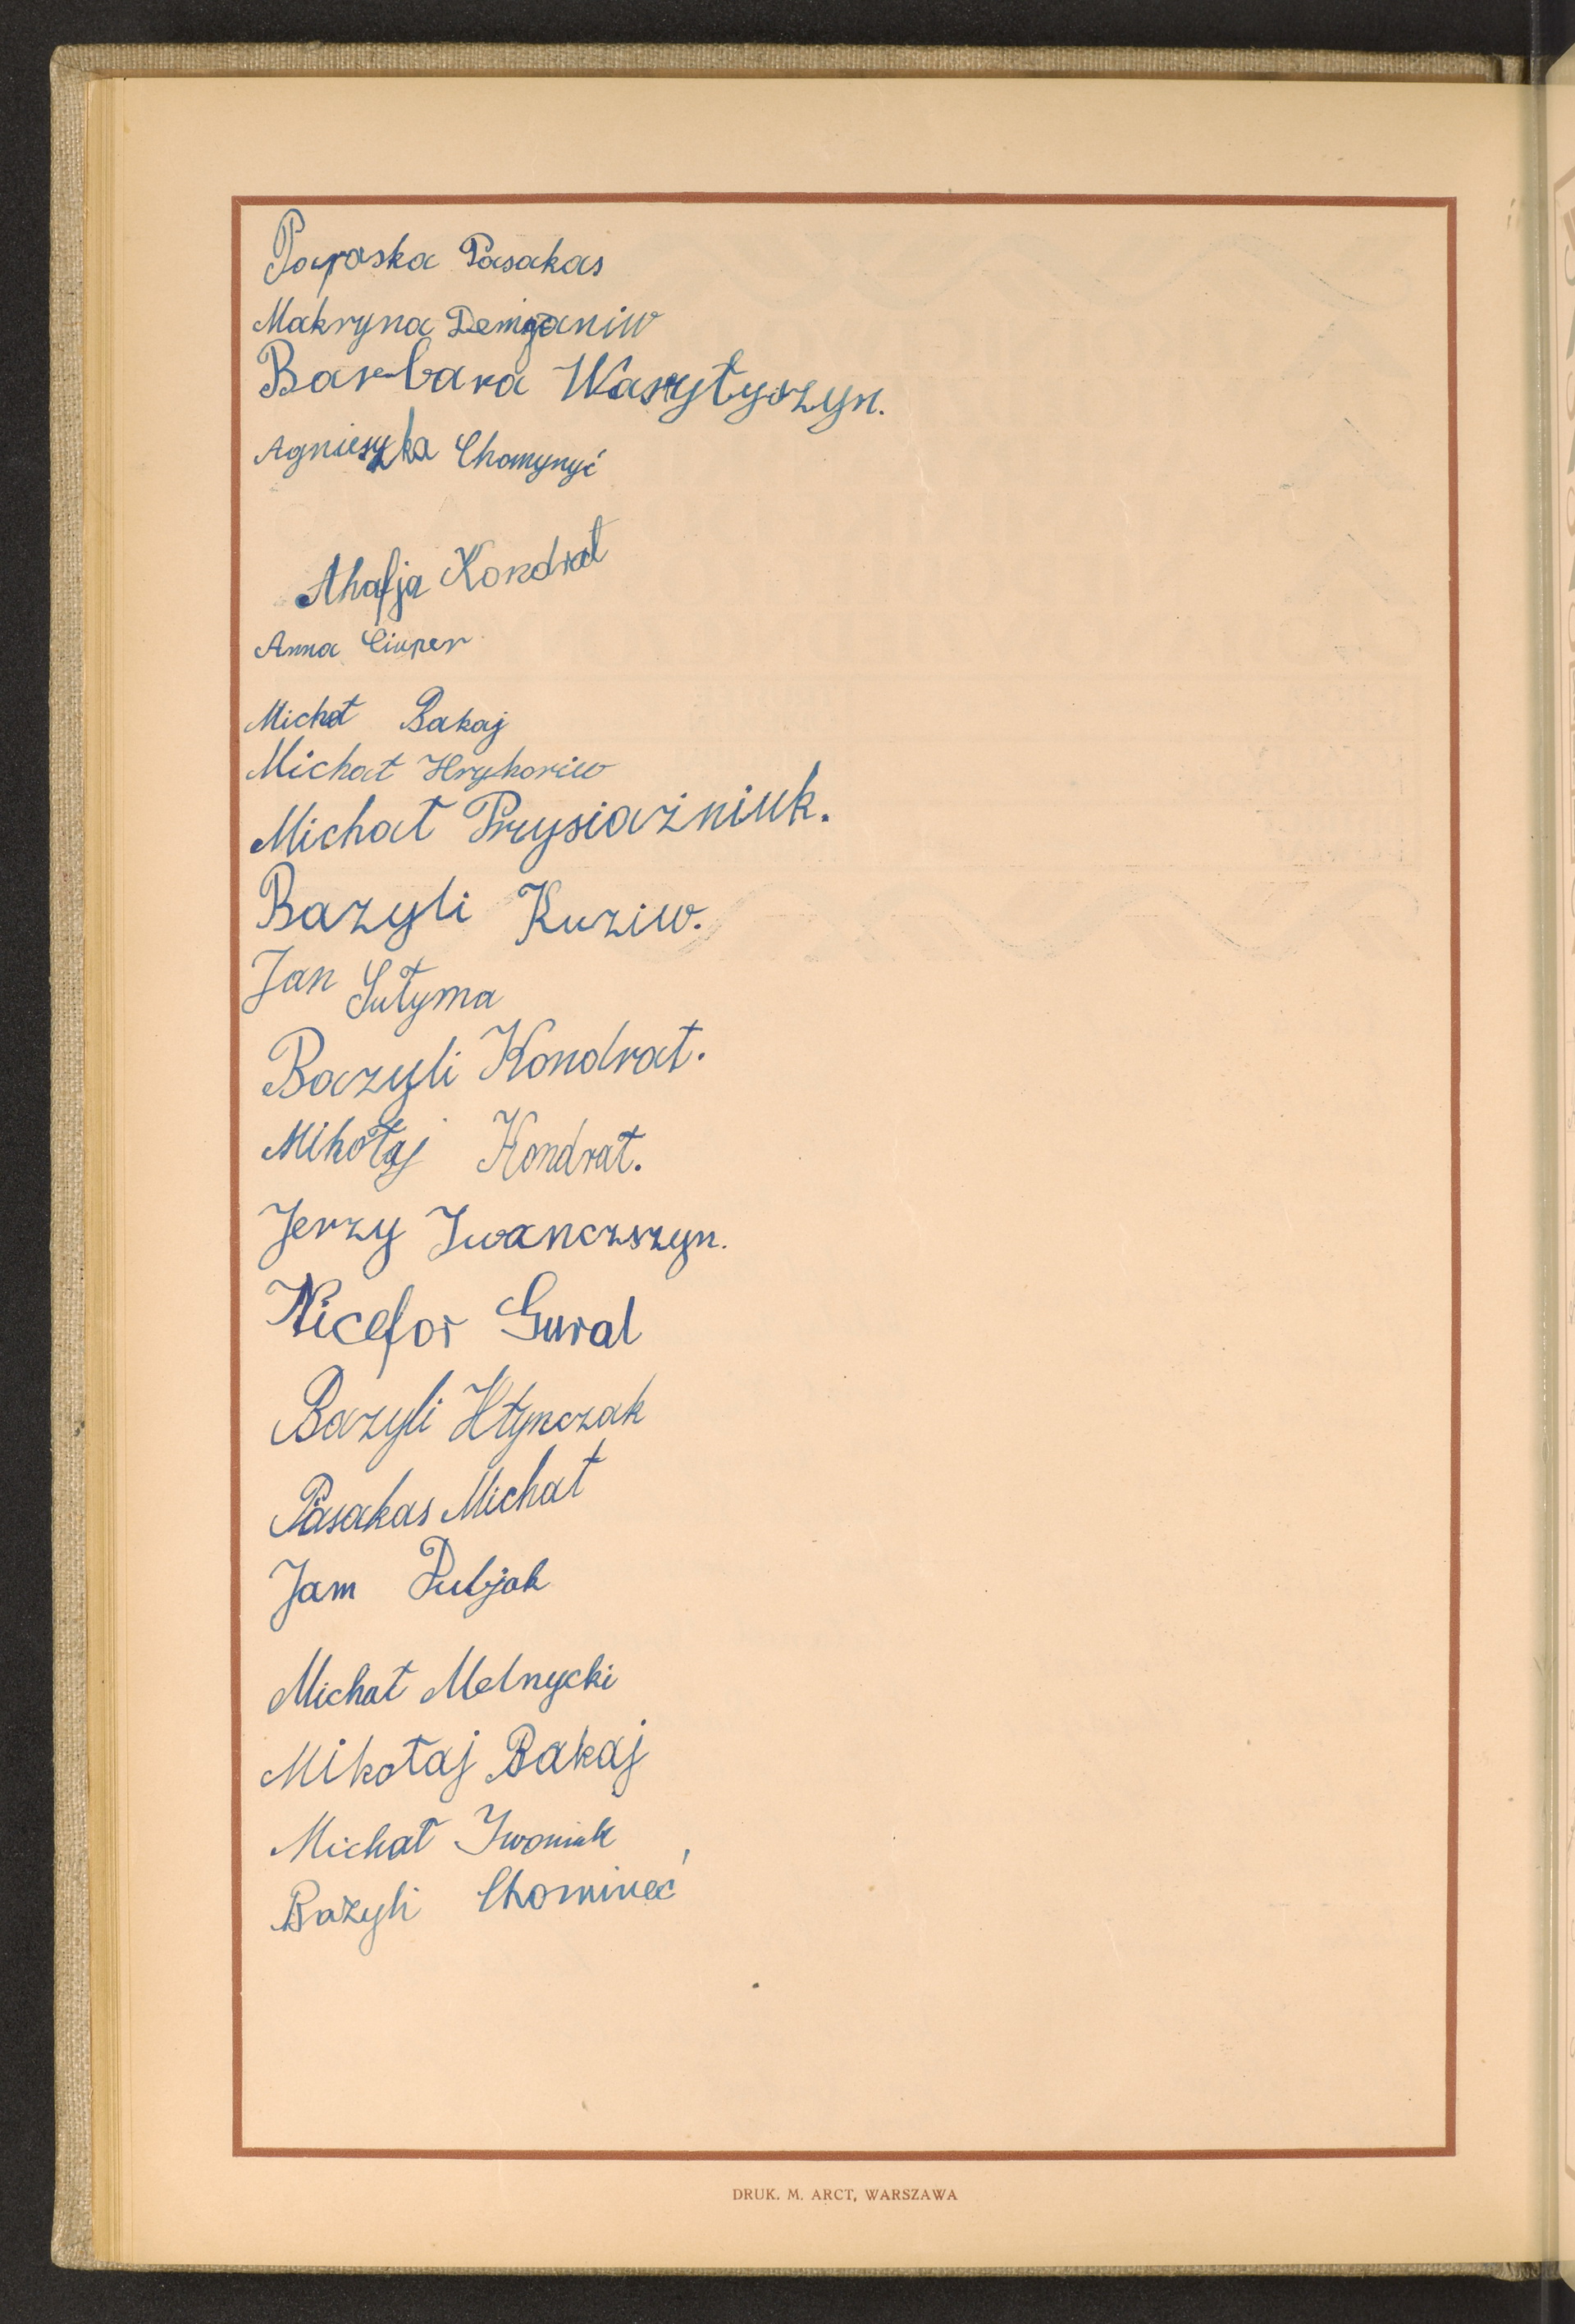 Paraska Pasakas
Makryna Demjaniw
Barbara Wasyłyszyn.
Agnieszka Chomynyć
Ahafja Kondrat
Anna Ciuper
Michał Bakaj
Michał Hryhoriw
Michał Prysiażniuk.
Bazyli Kuziw.
Jan Sułyma
Bazyli Kondrat.
Mikołaj Kondrat.
Jerzy Iwanczszyn.
Nicefor Gural
Bazyli Hłynczak
Pasakas Michał
Jam Pubjak
Michał Melnycki
Mikołaj Bakaj
Michał Iwoniuk
Bazyli Chomineć
DRUK. M. ARCT, WARSZAWA